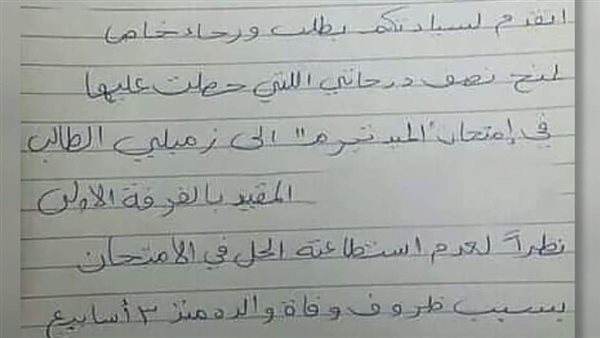 اتقدم لسيادتكم بطلب ورجاء خاص
لمنح نصف درجاتي اللتي حصلت عليها
في إمتحان "الميدتيرم" الى زميلي الطالب
المقيد بالفرقة الاولى
نظراً لعدم استطاعته الحل في الامتحان
بسبب ظروف وفاة والده منذ ٣ أسابيع